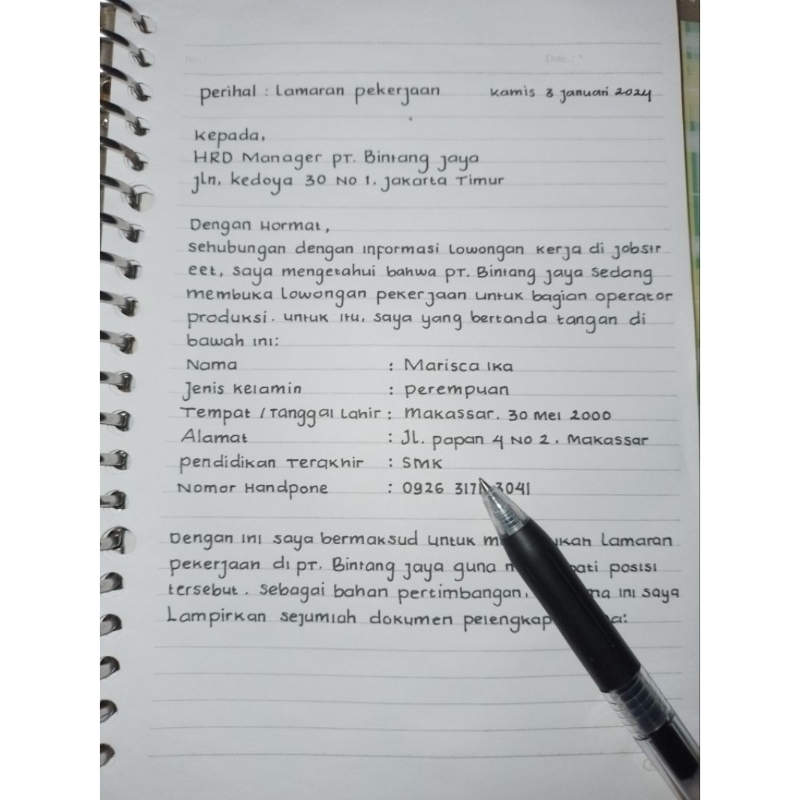 No.: Date.:
perihal : Lamaran pekerjaan Kamis 3 Januari 2024
kepada,
HRD Manager PT. Bintang Jaya
Jln. kedoya 30 No 1. Jakarta Timur
Dengan Hormat,
sehubungan dengan informasi Lowongan kerja di jobstr
eet, saya mengetahui bahwa PT. Bintang Jaya sedang
membuka Lowongan pekerjaan untuk bagian operator
produksi. untuk itu, saya yang bertanda tangan di
bawah ini:
Nama : Marisca Ika
Jenis kelamin : perempuan
Tempat / Tanggal Lahir : Makassar. 30 Mei 2000
Alamat : Jl. papan 4 No 2. Makassar
pendidikan Terakhir : SMK
Nomor Handpone : 0926 3041
Dengan ini saya bermaksud untuk Lamaran
pekerjaan di PT. Bintang Jaya guna posisi
tersebut. sebagai bahan pertimbangan. ini saya
Lampirkan sejumlah dokumen pelengkap